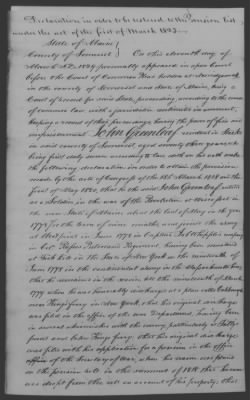 Declaration in order to be restored to the Pension List
under the act of the first of March 1823.
State of Maine
County of Somerset } On this eleventh day of
A.D. 1829 personally appeared in open Court
before the Court of Common Pleas holden at Norridgewock
in the county of Somerset and State of Maine, being
a Court of Record for said State, proceeding according to the course
of common law, with a jurisdiction unlimited in amount,
keeping a record of their proceedings, having the power of fine and
imprisonment John Greenleaf resident in Starks
in said county of Somerset, aged seventy three years who
being first duly sworn according to law, doth on his oath make
the following declaration in order to obtain the provision
made by the acts of Congress of the 18th March 1818 and the
first of May 1820, that he the said John Greenleaf enlisted
as a Soldier in the war of the Revolution at
now State of Maine
for the term of nine months and joined the army
at West point in June 1778 in Captain
in Col. Rufus Putnams Regiment, having been mustered
at Fish Kill in the State of New York in the month of
June 1778 in the continental army in the
that he continued in the service till the
1779 when he was honorably discharged at a place called
near Kings ferry in New York, that his original discharge
was filed in the office of the war Department, having been
in several skirmishes with the enemy, particularly at
and below Kings ferry; that his original discharge
was filed with his application for a pension in the office
of the Secretary of War, when his name was placed
on the pension list in the summer of 1818 that he was
dropt from the list on account of his property; that